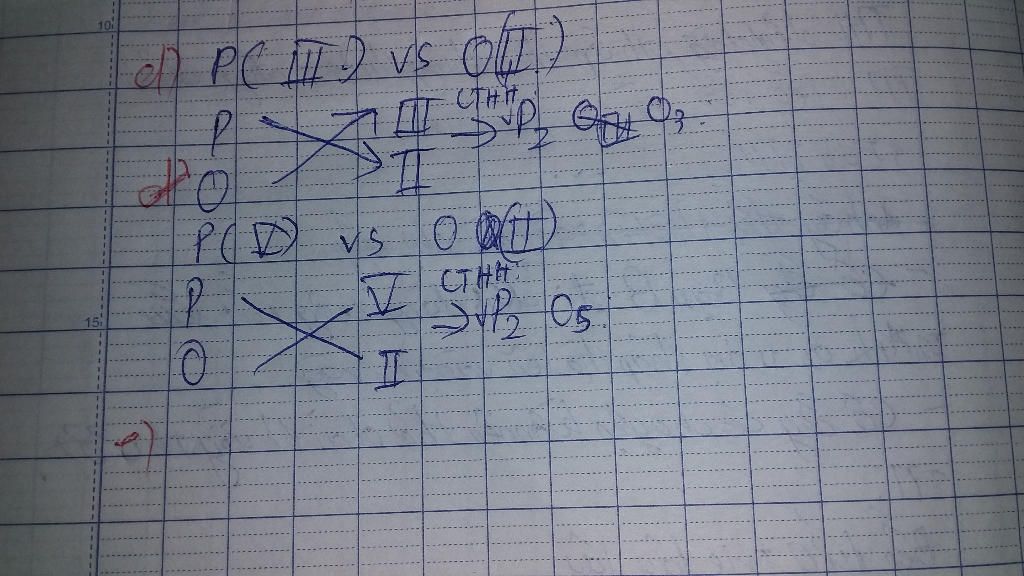 10
d) P( III ) vs O(II)
P III CTHH → P₂ O₃.
O II
P( V ) vs O (II)
P V CTHH:
15 → P₂ O₅.
O II
e)